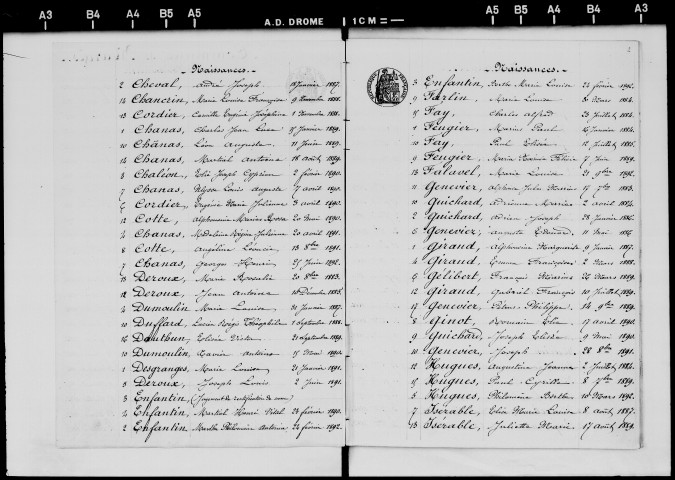 A3 B4 B5 A5 A.D. DROME 1 CM = A5 B5 B4 A3
Naissances.
2 Cheval, André Joseph 18 Janvier 1887.
14 Chancrin, Marie Louise Françoise 9 Novembre 1888.
13 Cordier, Camille Eugène Joséphine 1 Novembre 1881.
1 Chanas, Charles Jean 15 Janvier 1889.
10 Chanas, Léon Auguste 11 Juin 1889.
14 Chanas, Martial Antoine 18 août 1889.
3 Chalion, Elie Joseph Cyprien 2 février 1890.
7 Chanas, Ulysse Louis Auguste 7 avril 1890.
6 Cordier, Eugénie Marie Julienne 3 avril 1890.
12 Cotte, Alphonsine Marie Rosa 20 Mai 1890.
4 Chanas, Madeleine Régine Julienne 20 avril 1891.
8 Cotte, Angéline Léoncie 13 8bre 1891.
7 Chanas, Georges Henri 25 Juin 1892.
13 Deroux, Marie Rosalie 20 8bre 1883.
12 Deroux, Jean Antoine 10 Décembre 1885.
4 Dumoulin, Marie Louise 31 Janvier 1887.
10 Duffard, Lucien Régis Théophile 1 Septembre 1888.
16 Dauthun, Elisée Victor 21 Septembre 1889.
10 Dumoulin, Xavier Antoine 15 Mai 1890.
1 Desgranges, Marie Louise 21 Janvier 1891.
5 Deroux, Joseph Louis 2 Juin 1891.
3 Enfantin (Jugement de rectification de nom)
4 Enfantin, Martial Henri Vital 23 février 1890.
2 Enfantin, Marthe Philomène Antonia 24 février 1892.
2
Naissances.
3 Enfantin, Berthe Marie Louise 24 février 1892.
9 Farlin, Marie Louise 8 Mars 1884.
15 Fay, Charles Alfred 23 Juillet 1884.
1 Feugier, Marius Paul 16 Janvier 1884.
10 Fay, Paul Elisée 12 Juillet 1885.
9 Feugier, Marie 7 Juin 1889.
13 Falavel, Marie Louise 21 9bre 1892.
11 Genevier, Jules Henri 17 7bre 1883.
10 Guichard, Adrienne Marie 2 avril 1884.
2 Guichard, Adrien Joseph 28 Janvier 1886.
6 Genevier, Auguste Edouard 11 Mai 1886.
1 Giraud, Alphonsine Marguerite 9 Janvier 1887.
4 Giraud, Emma Françoise 2 Mars 1888.
6 Gélibert, François 26 Mars 1889.
12 Giraud, Gabriel François 10 Juillet 1889.
17 Genevier, Philippe 14 9bre 1889.
8 Ginot, Romain Elie 17 avril 1890.
9 Guichard, Joseph Elisée 9 Mai 1890.
10 Genevier, Joseph 28 8bre 1891.
12 Hugues, Augustine Jeanne 2 Juillet 1884.
15 Hugues, Paul Cyrille 8 7bre 1889.
5 Hugues, Philomène Berthe 10 Mars 1892.
7 Isérable, Elie Marie Louise 8 août 1887.
13 Isérable, Juliette Marie 17 août 1889.